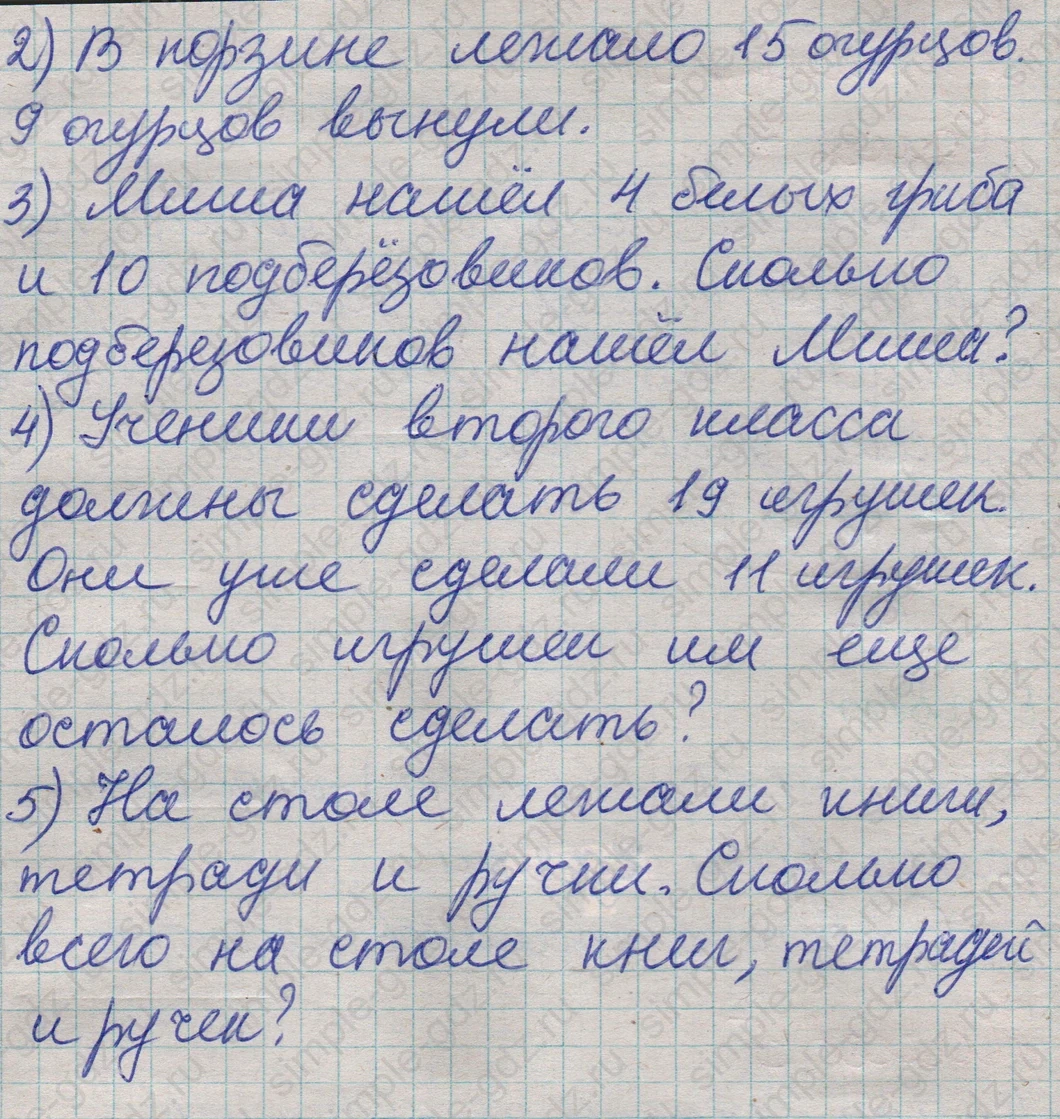 2) В корзине лежало 15 огурцов.
9 огурцов вынули.
3) Миша нашёл 4 белых гриба
и 10 подберёзовиков. Сколько
подберезовиков нашёл Миша?
4) Ученики второго класса
должны сделать 19 игрушек.
Они уже сделали 11 игрушек.
Сколько игрушек им еще
осталось сделать?
5) На столе лежали книги,
тетради и ручки. Сколько
всего на столе книг, тетрадей
и ручек?